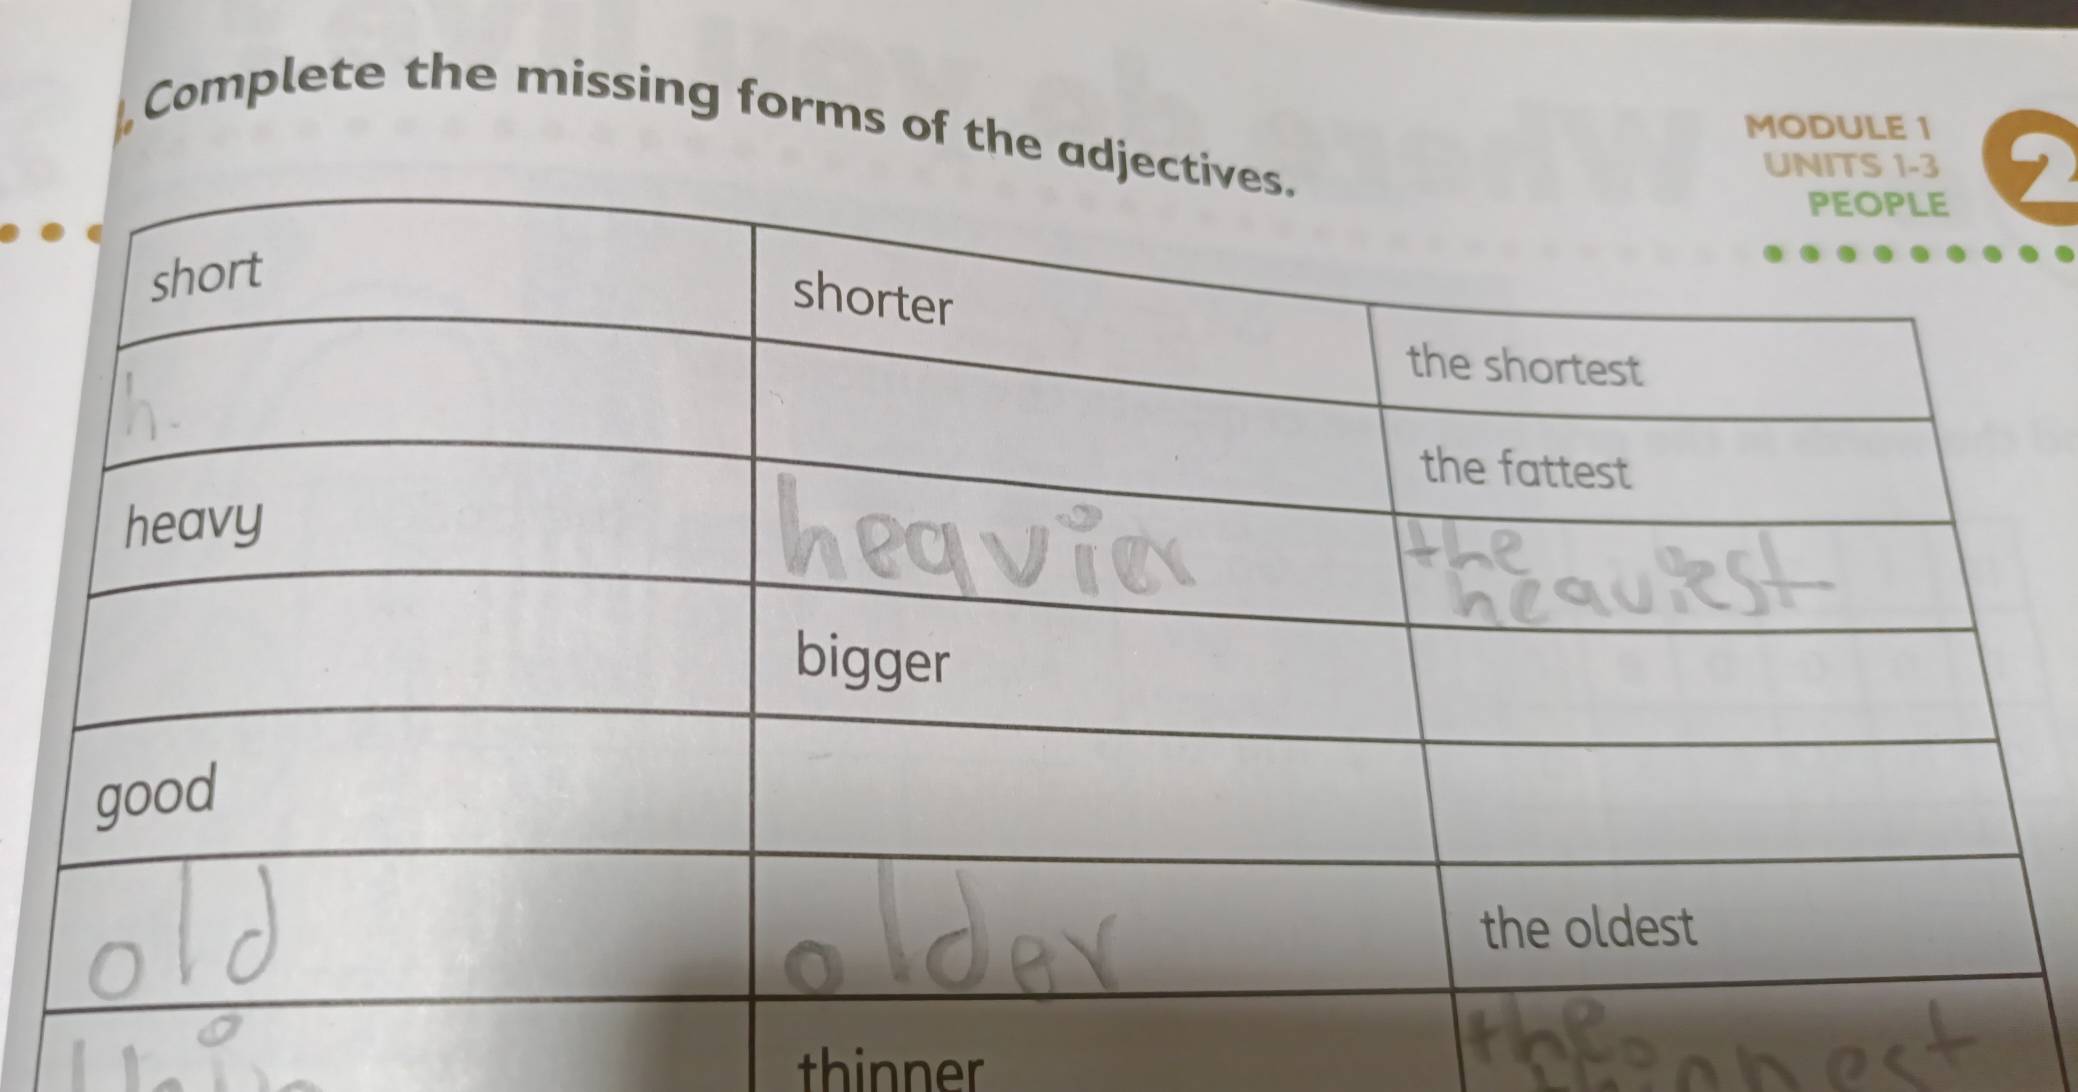 Complete the missing forms of the adjectives.
MODULE 1
UNITS 1-3
PEOPLE
2
short
shorter
the shortest
h.
the fattest
heavy
heavier
the
heaviest
bigger
good
old
older
the oldest
thin
thinner
the
thinnest